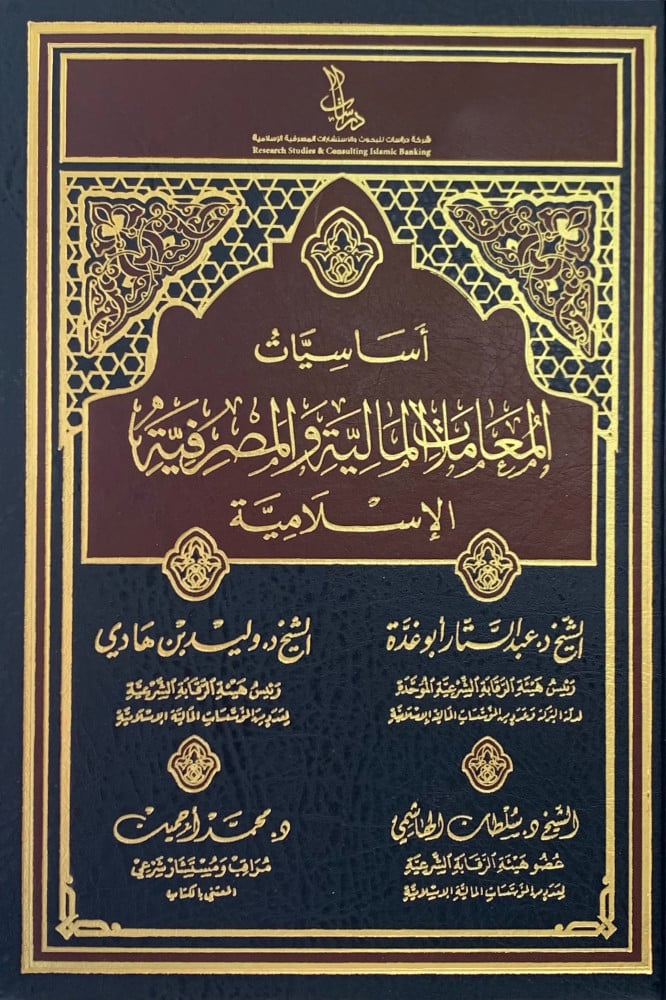 دراسات
شركة دراسات للبحوث والاستشارات المصرفية الإسلامية
Research Studies & Consulting Islamic Banking
أساسيّاتُ
المُعَامَلات المَاليَّة وَالمَصْرِفيَّةُ
الإسْلَاميَّة
الشيخ د. عبد الستّار أبو غدّة
رئيس هيئة الرقابة الشرعية الموحدة
لدلة البركة وعدد من المؤسسات المالية الإسلامية
الشيخ د. وليد بن هادي
رئيس هيئة الرقابة الشرعية
لعدد من المؤسسات المالية الإسلامية
الشيخ د. سلطان الهاشمي
عضو هيئة الرقابة الشرعية
لعدد من المؤسسات المالية الإسلامية
د. محمد أحمين
مراقب ومستشار شرعي
المعتني بالكتاب